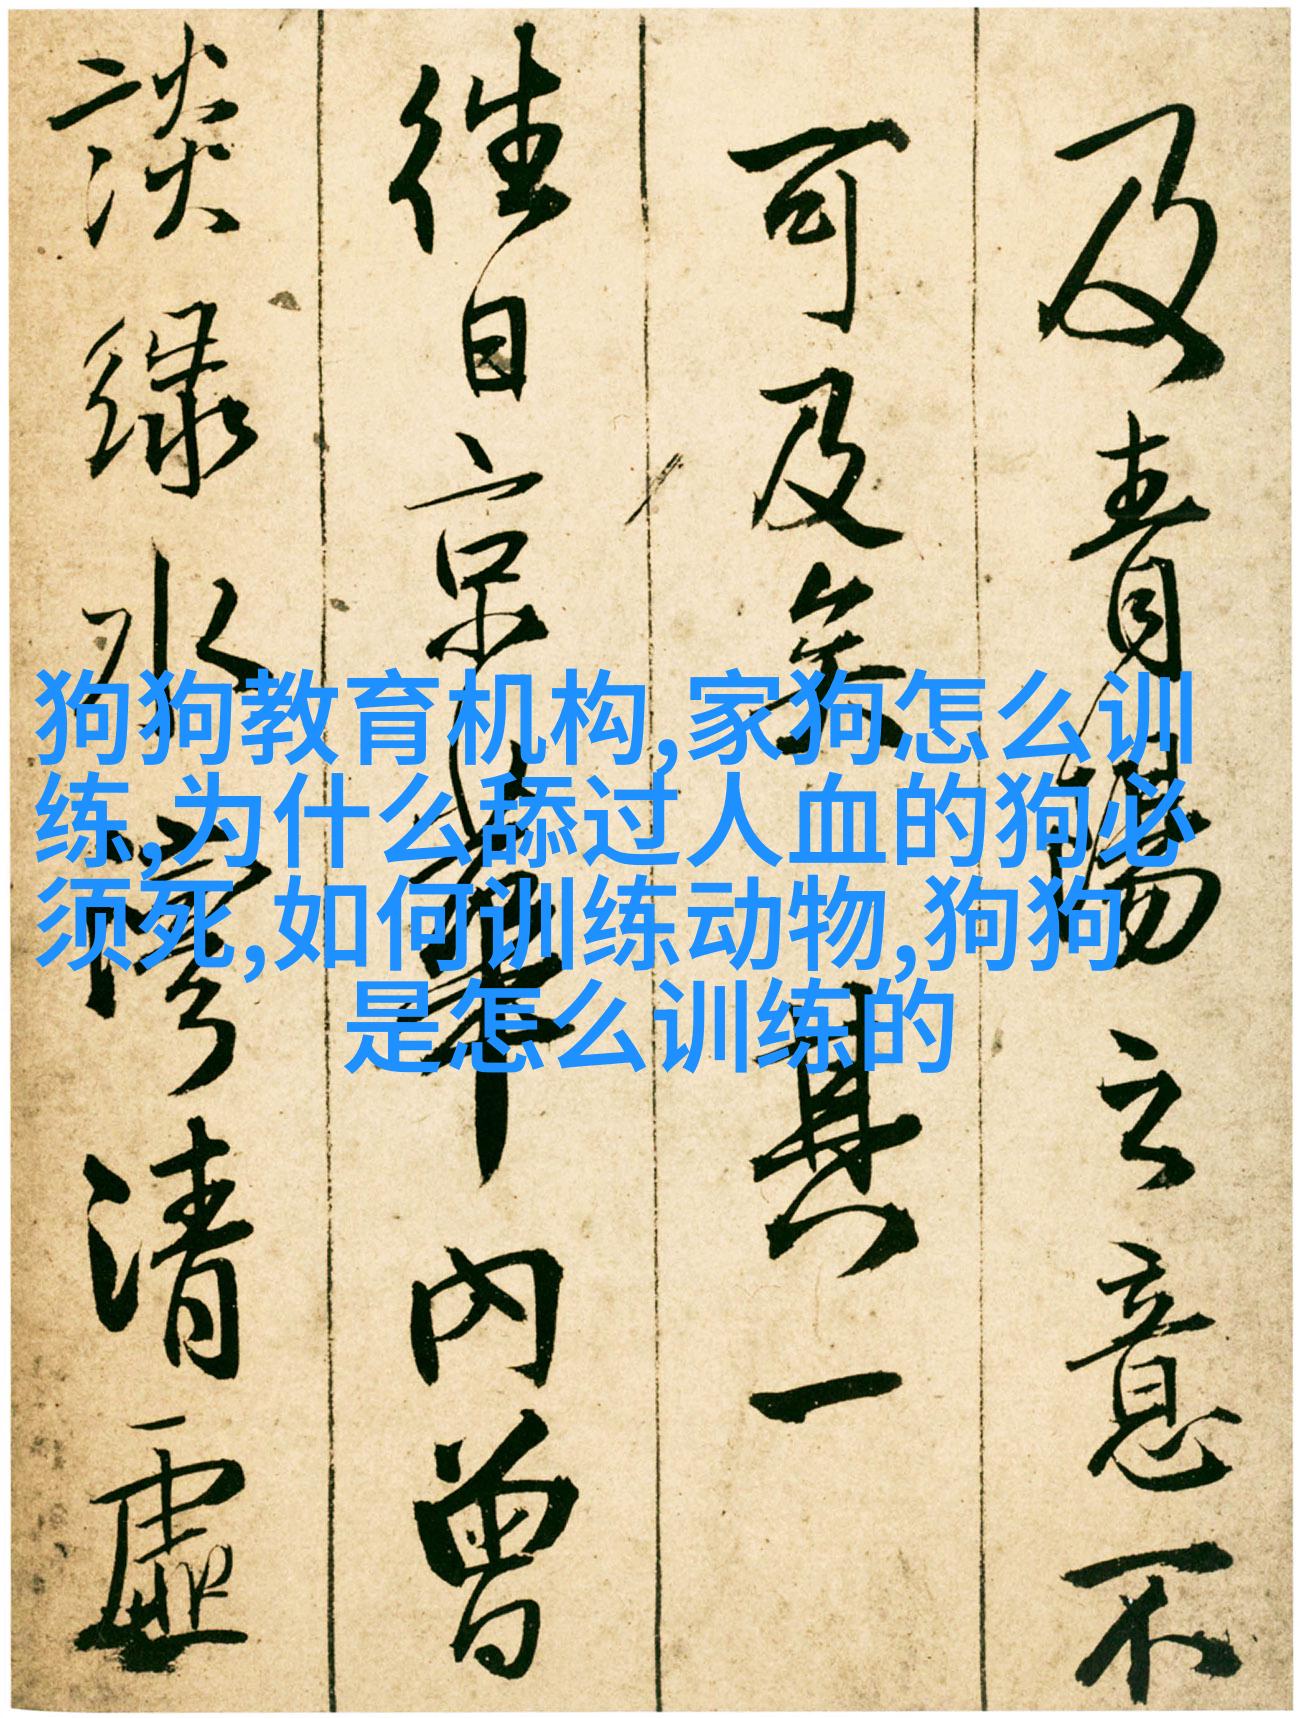 及青陽之意不
可及矣其一
往日京華內曾
談綠水潺清虛
狗狗教育机构,家狗怎么训
练,为什么舔过人血的狗必
须死,如何训练动物,狗狗
是怎么训练的